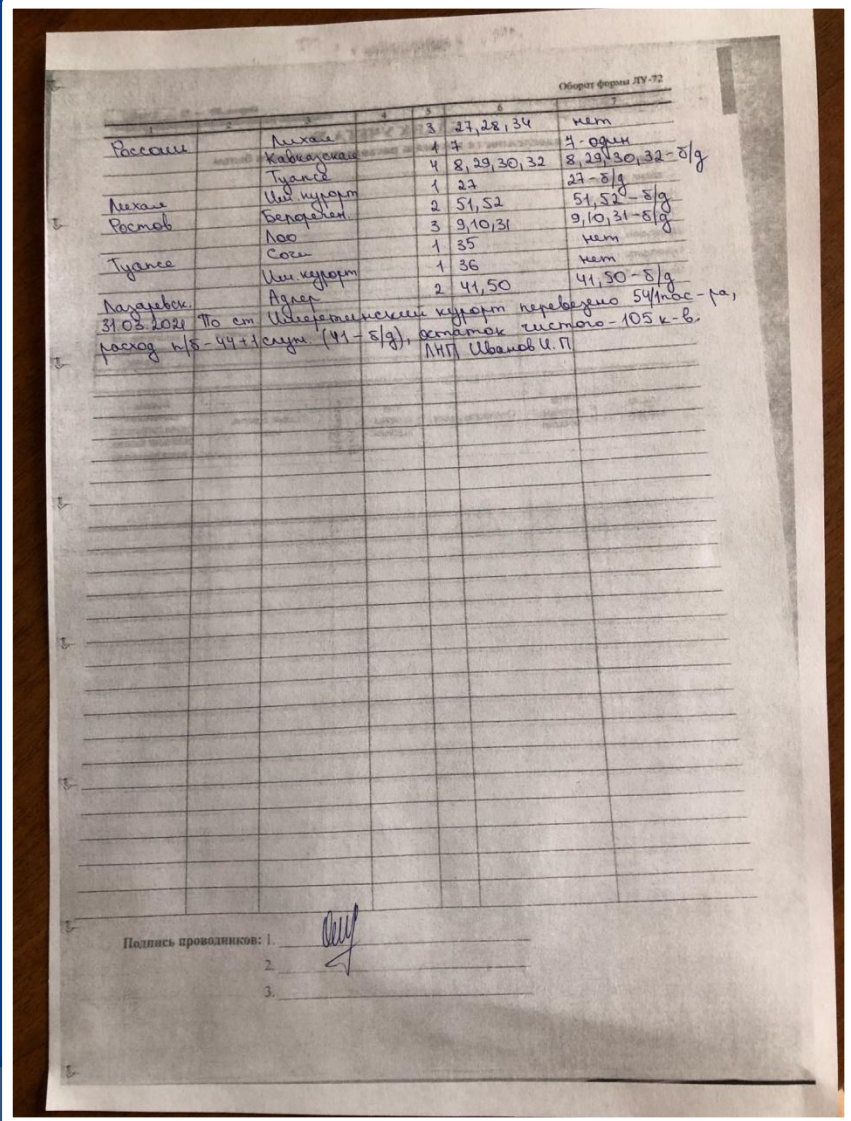 Оборот формы ЛУ-72
1 2 3 4 5 6 7
Россошь Лихая 3 27,28,34 нет
Кавказская 1 7 7-один
Туапсе 4 8,29,30,32 8,29,30,32-б/д
Лихая Им. курорт 1 27 27-б/д
Ростов Белоречен. 2 51,52 51,52-б/д
Лоо 3 9,10,31 9,10,31-б/д
Туапсе Сочи 1 35 нет
Им. курорт 1 36 нет
Лазаревск. Адлер 2 41,50 41,50-б/д
31.03.2021 По ст Имеретинский курорт перевезено 54/1пас-ра,
расход п/б-44+1служ. (41-б/д), остаток чистого-105 к-в.
ЛНП Иванов И.П
Подпись проводников: 1.
2.
3.